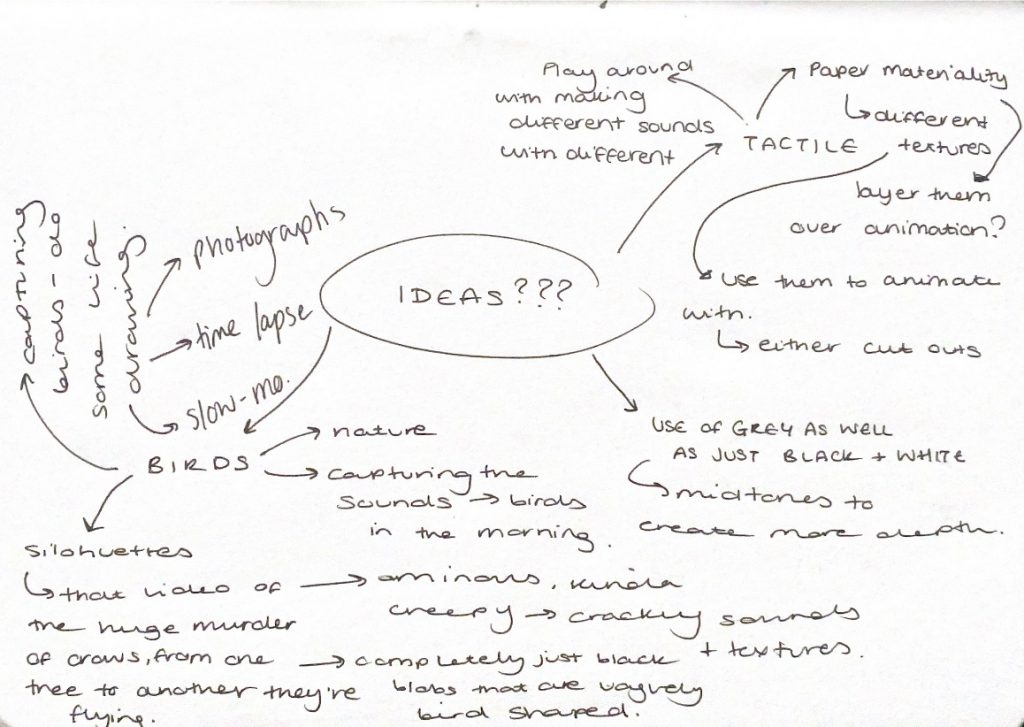 IDEAS???
TACTILE
Play around
with making
different sounds
with different
Paper materiality
different
textures
layer them
over animation?
use them to animate
with.
either cut outs
USE OF GREY AS WELL
AS JUST BLACK + WHITE
midtones to
create more depth.
BIRDS
capturing
birds - do
some life
drawing.
photographs
time lapse
slow-mo.
nature
capturing the
sounds → birds
in the morning.
silohuettes
that video of
the huge murder
of crows, from one
tree to another they're
flying.
ominous, kinda
creepy → crackly sounds
+ textures.
completely just black
blobs that are vaguely
bird shaped.